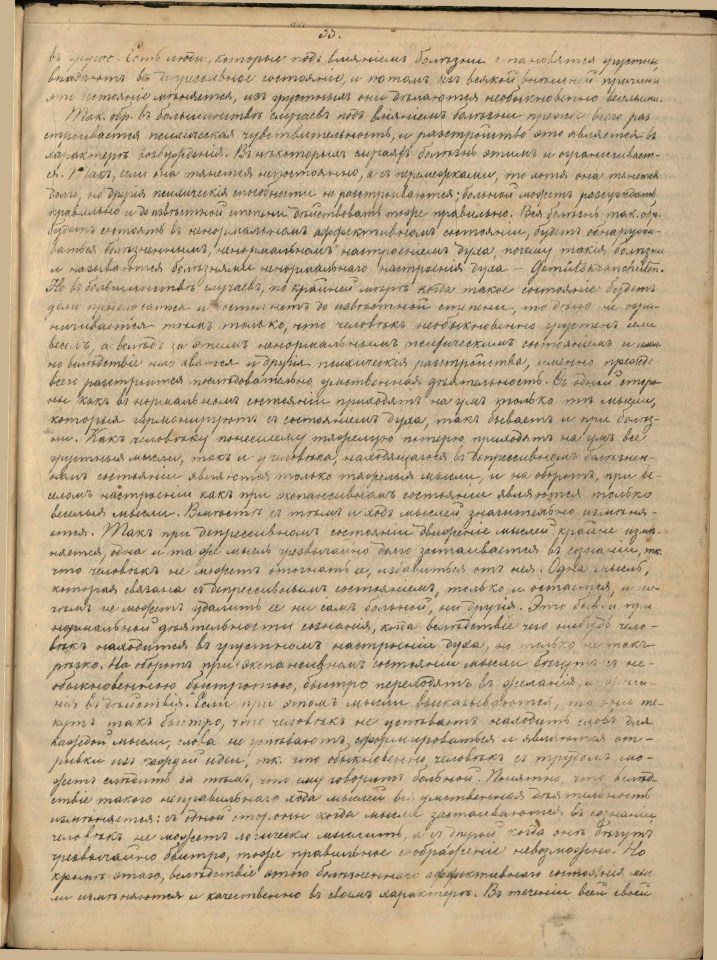 33.
въ другое. Есть люди, которые подъ вліяніемъ болѣзни становятся грустны,
впадаютъ въ депрессивное состояніе, и потомъ безъ всякой внѣшней причины
это состояніе мѣняется, изъ грустныхъ они дѣлаются необыкновенно веселыми.
Так. обр. въ большинствѣ случаевъ подъ вліяніемъ болѣзни прежде всего раз
страивается психическая чувствительность, и разстройство это является въ
характерѣ возбужденія. Въ нѣкоторыхъ случаяхъ болѣзнь этимъ и ограничивает-
ся. Такъ, если она тянется непостоянно, а съ перемежками, то хотя она тянется
долго, но другія психическія способности не разстраиваются; больной можетъ разсуждать
правильно и до извѣстной степени дѣйствовать тоже правильно. Вся болѣзнь так. обр.
будетъ состоять въ ненормальномъ аффективномъ состояніи, будетъ обнаружи-
ваться болѣзненнымъ, ненормальнымъ настроеніемъ духа, почему такія болѣзни
и называются болѣзнями ненормальнаго настроенія духа – Gemüthskrankheiten.
Но въ большинствѣ случаевъ, по крайней мѣрѣ когда такое состояніе будетъ
долго продолжаться и достигнетъ до извѣстной степени, то дѣло не огра-
ничивается тѣмъ только, что человѣкъ необыкновенно грустенъ или
веселъ, а вслѣдъ за этимъ ненормальнымъ психическимъ состояніемъ и имен-
но вслѣдствіе него явятся и другія психическія разстройства, именно прежде
всего разстроится послѣдовательно умственная дѣятельность. Съ одной сторо-
ны какъ въ нормальномъ состояніи приходятъ на умъ только тѣ мысли,
которыя гармонируютъ съ состояніемъ духа, такъ бываетъ и при болѣз-
ни. Какъ человѣку понесшему тяжелую потерю приходятъ на умъ все
грустныя мысли, такъ и у человѣка, находящагося въ депрессивномъ болѣзнен-
номъ состояніи являются только тяжелыя мысли, и на оборотъ, при ве-
селомъ настроеніи какъ при экспансивномъ состояніи являются только
веселыя мысли. Вмѣстѣ съ тѣмъ и ходъ мыслей значительно измѣня-
ется. Такъ при депрессивномъ состояніи движеніе мыслей крайне измѣ-
няется, одна и та же мысль чрезвычайно долго застаивается въ сознаніи, тк.
что человѣкъ не можетъ отогнать ее, избавиться отъ нея. Одна мысль,
которая связана съ депрессивнымъ состояніемъ, только и остается, и ни-
чѣмъ не можетъ удалить ее ни самъ больной, ни другія. Это бываетъ и при
нормальной дѣятельности сознанія, когда вслѣдствіе чего нибудь чело-
вѣкъ находится въ грустномъ настроеніи духа, но только не такъ
рѣзко. На оборотъ при экспансивномъ состояніи мысли бѣгутъ съ не-
обыкновенною быстротою, быстро переходятъ въ желанія, а жела-
нія въ дѣйствія. Если при этомъ мысли высказываются, то онѣ те-
кутъ такъ быстро, что человѣкъ не успѣваетъ находить словъ для
каждой мысли, слова не успѣваютъ сформироваться и являются от-
рывки изъ каждой идеи, тк. что обыкновенно человѣкъ съ трудомъ мо-
жетъ слѣдить за тѣмъ, что ему говоритъ больной. Понятно, что вслѣд-
ствіе такого неправильнаго хода мыслей вся умственная дѣятельность
измѣняется: съ одной стороны когда мысли застаиваются въ сознаніи
человѣкъ не можетъ логически мыслить, а съ другой когда онѣ бѣгутъ
чрезвычайно быстро, тоже правильное соображеніе невозможно. Но
кромѣ этаго, вслѣдствіе этого болѣзненнаго аффективнаго состоянія мыс-
ли измѣняются и качественно въ своемъ характерѣ. Въ теченіи всей своей